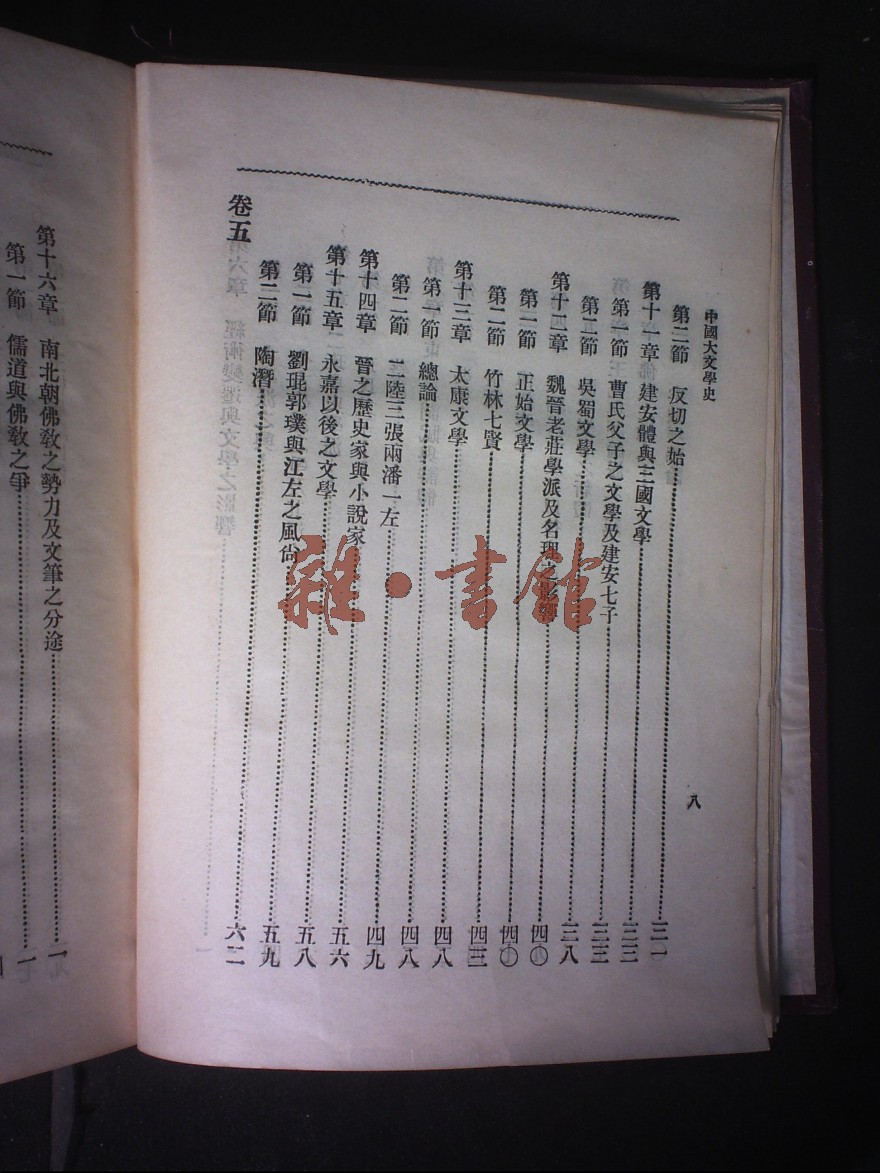 中國大文學史
八
第二節 反切之始 三一
第十一章 建安體與三國文學 三三
第一節 曹氏父子之文學及建安七子 三三
第二節 吳蜀文學 三八
第十二章 魏晉老莊學派及名理之影響 四〇
第一節 正始文學 四〇
第二節 竹林七賢 四三
第十三章 太康文學 四八
第一節 總論 四八
第二節 二陸三張兩潘一左 四九
第十四章 晉之歷史家與小說家 五六
第十五章 永嘉以後之文學 五八
第一節 劉琨郭璞與江左之風尚 五九
第二節 陶潛 六二
卷五
第十六章 南北朝佛敎之勢力及文筆之分途 一
第一節 儒道與佛敎之爭 一
雜·書館